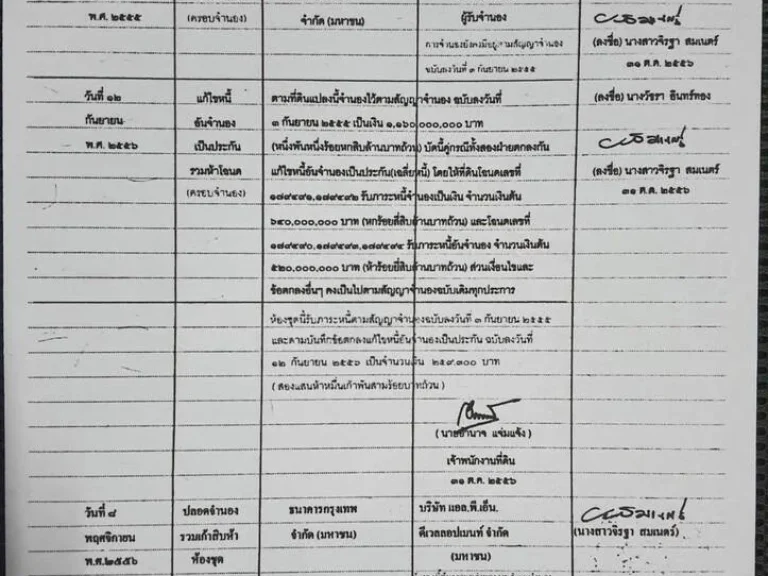 พ.ศ. ๒๕๕๕ (ครอบจำนอง) จำกัด (มหาชน) ผู้รับจำนอง
การจำนองยังคงมีอยู่ตามสัญญาจำนอง (ลงชื่อ) นางสาวจิรฐา สมเนตร์
ฉบับลงวันที่ ๓ กันยายน ๒๕๕๕ ๓๑ ต.ค. ๒๕๕๖
วันที่ ๑๒ แก้ไขหนี้ ตามที่ดินแปลงนี้จำนองไว้ตามสัญญาจำนอง ฉบับลงวันที่ (ลงชื่อ) นางวัชรา อินทร์ทอง
กันยายน อันจำนอง ๓ กันยายน ๒๕๕๕ เป็นเงิน ๑,๑๖๐,๐๐๐,๐๐๐ บาท
พ.ศ. ๒๕๕๖ เป็นประกัน (หนึ่งพันหนึ่งร้อยหกสิบล้านบาทถ้วน) บัดนี้คู่กรณีทั้งสองฝ่ายตกลงกัน
รวมห้าโฉนด แก้ไขหนี้อันจำนองเป็นประกัน(เฉลี่ยหนี้) โดยให้ที่ดินโฉนดเลขที่ (ลงชื่อ) นางสาวจิรฐา สมเนตร์
(ครอบจำนอง) ๑๗๙๔๙๑,๑๗๙๔๙๒ รับภาระหนี้จำนองเป็นเงิน จำนวนเงินต้น ๓๑ ต.ค. ๒๕๕๖
๖๔๐,๐๐๐,๐๐๐ บาท (หกร้อยสี่สิบล้านบาทถ้วน) และโฉนดเลขที่
๑๗๙๔๙๐,๑๗๙๔๙๓,๑๗๙๔๙๔ รับภาระหนี้อันจำนอง จำนวนเงินต้น
๕๒๐,๐๐๐,๐๐๐ บาท (ห้าร้อยยี่สิบล้านบาทถ้วน) ส่วนเงื่อนไขและ
ข้อตกลงอื่นๆ คงเป็นไปตามสัญญาจำนองฉบับเดิมทุกประการ
ห้องชุดนี้รับภาระหนี้ตามสัญญาจำนองฉบับลงวันที่ ๓ กันยายน ๒๕๕๕
และตามบันทึกข้อตกลงแก้ไขหนี้อันจำนองเป็นประกัน ฉบับลงวันที่
๑๒ กันยายน ๒๕๕๖ เป็นจำนวนเงิน ๒๕๙,๓๐๐ บาท
(สองแสนห้าหมื่นเก้าพันสามร้อยบาทถ้วน)
(นายอำนาจ แจ่มแจ้ง)
เจ้าพนักงานที่ดิน
๓๑ ต.ค. ๒๕๕๖
วันที่ ๘ ปลอดจำนอง ธนาคารกรุงเทพ บริษัท แอล.พี.เอ็น.
พฤศจิกายน รวมเก้าสิบห้า จำกัด (มหาชน) ดีเวลลอปเมนท์ จำกัด (นางสาวจิรฐา สมเนตร์)
พ.ศ.๒๕๕๖ ห้องชุด (มหาชน)